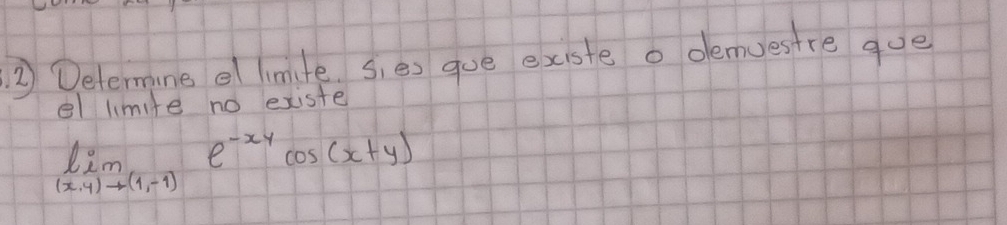 3.2) Determine el limite. Si es que existe o demuestre que
el limite no existe
lim e^{-xy} cos(x+y)
(x,y)→(1,-1)